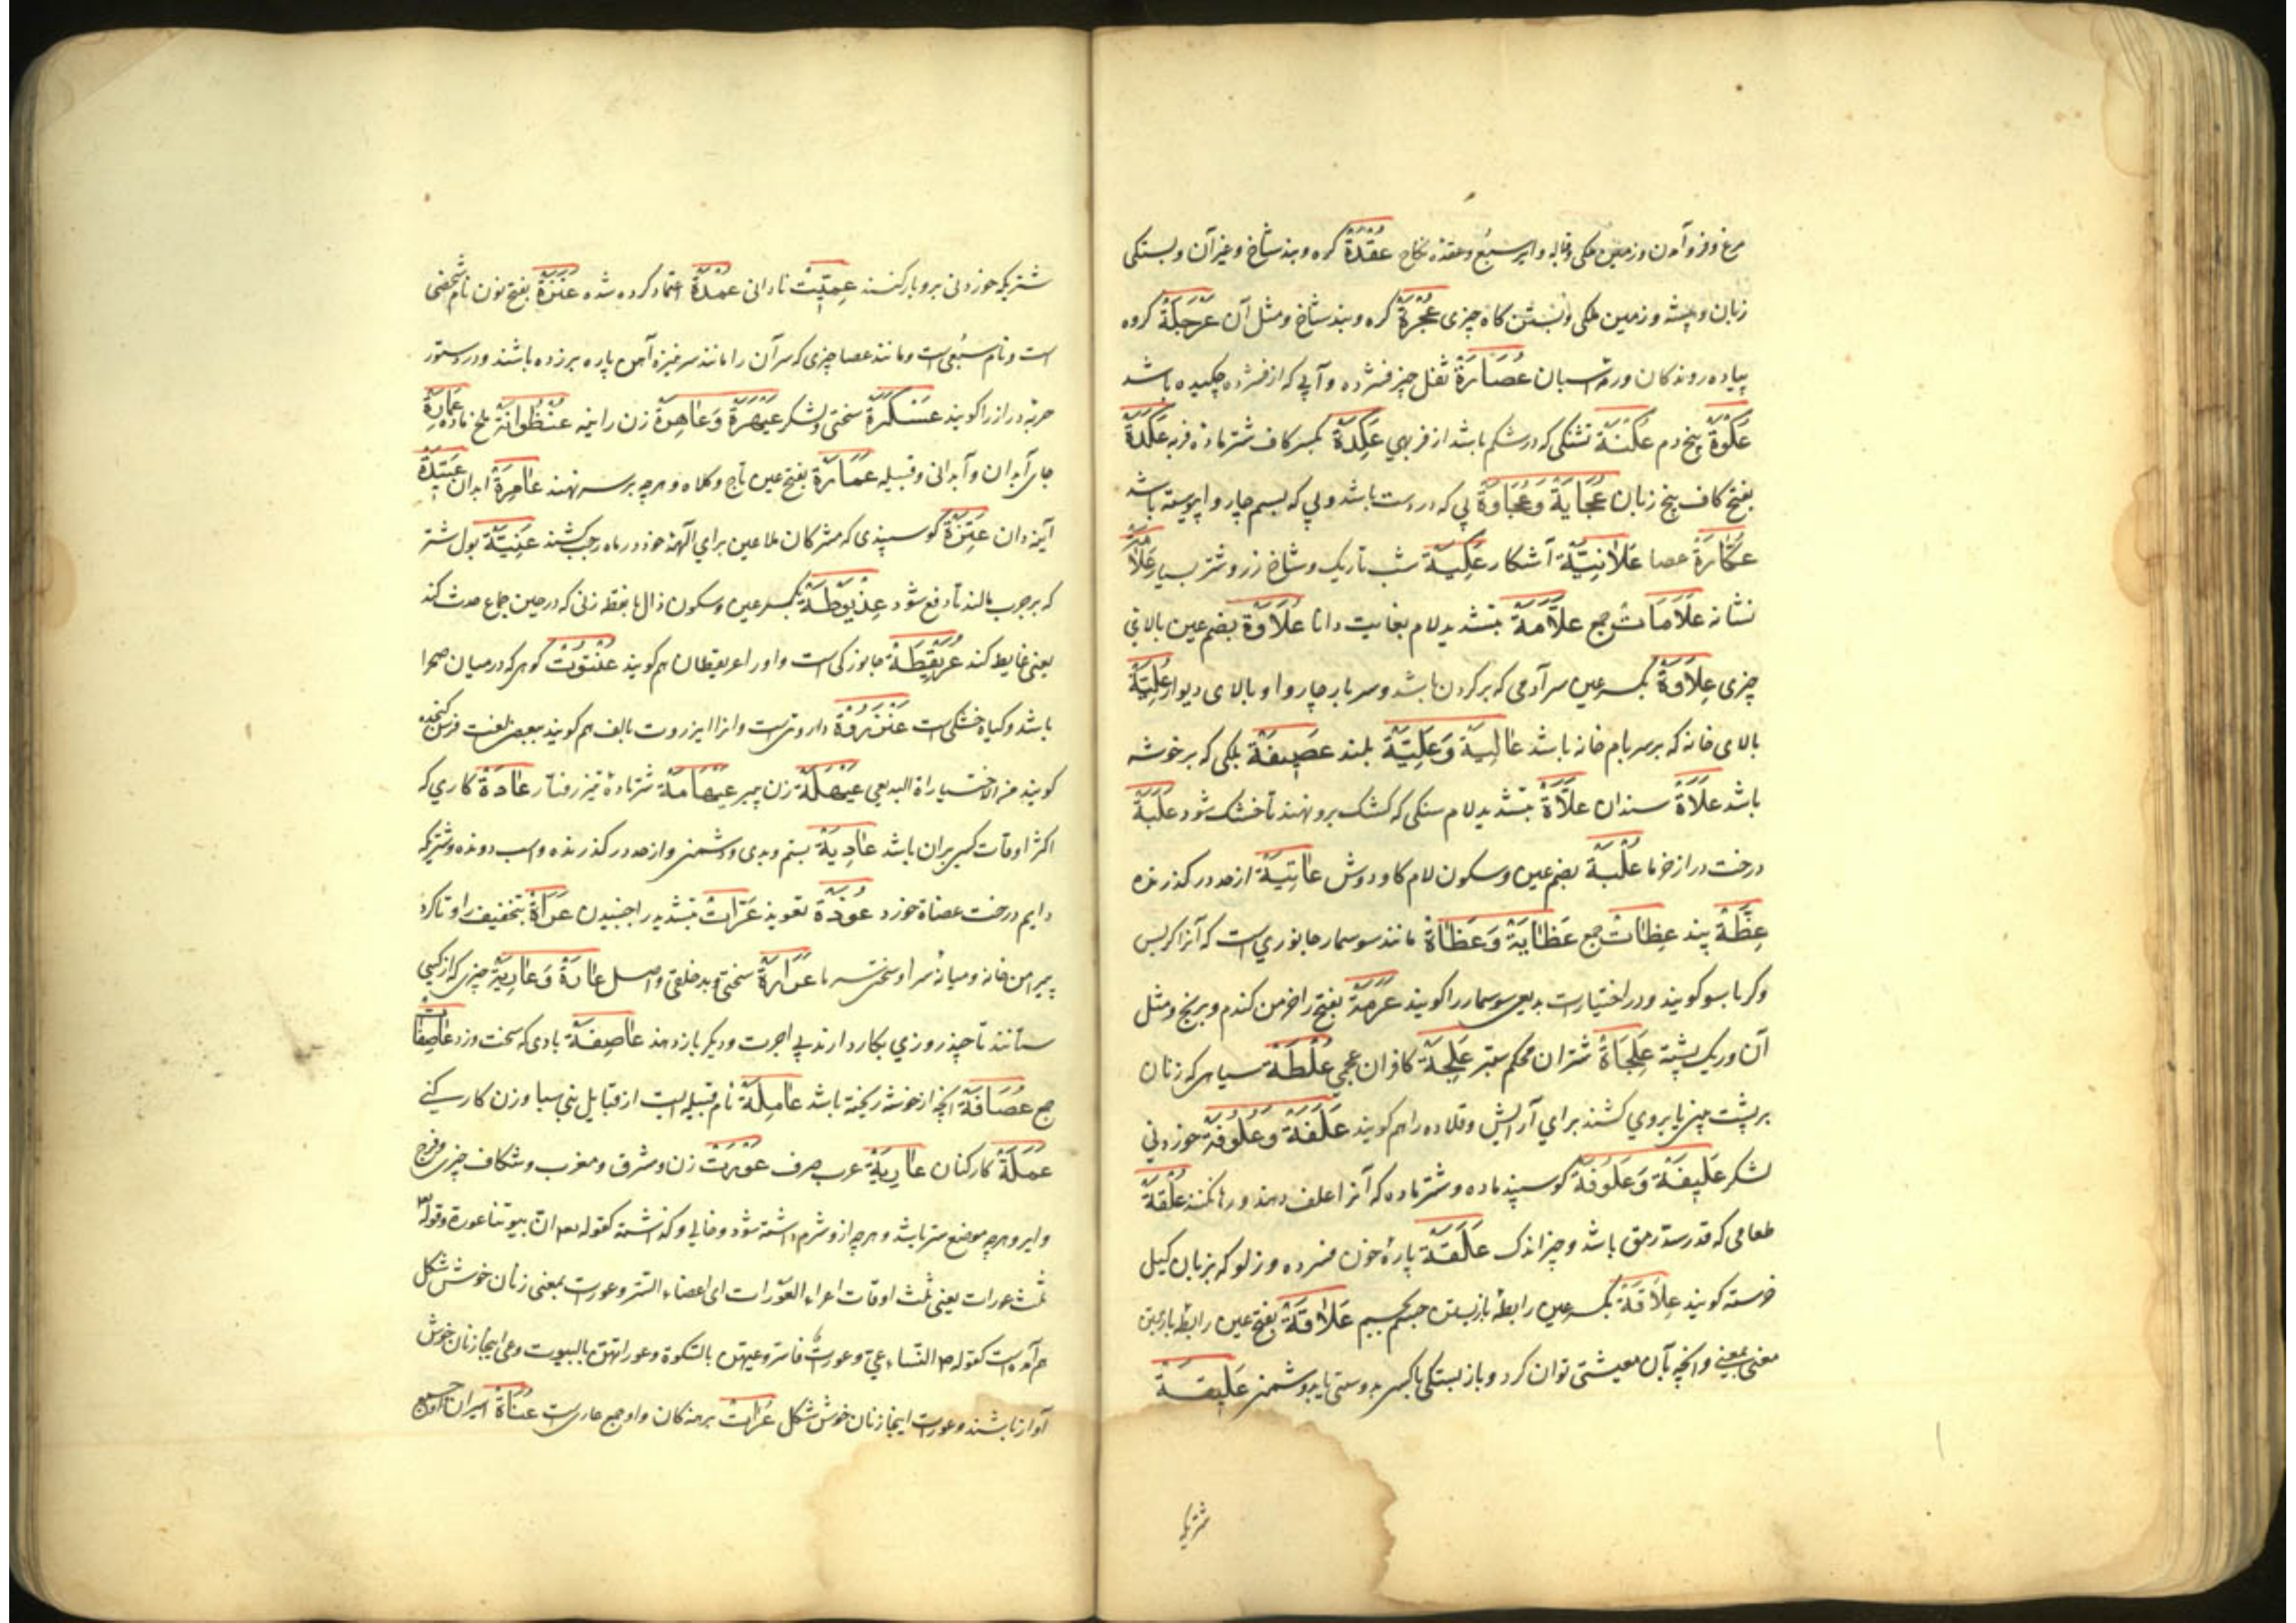 مرغ و فرو آمدن و زمین ملکی و عقده نکاح عُقْدَةٌ کره و بند شاخ و غیر آن و بستکی
زبان و پیشه و زمین ملکی و بستن کاه چیزی عُجْرَةٌ کره و بند شاخ و مثل آن عَرْجَلَةٌ کروه
پیاده روندکان و رمه اسبان عُصَارَةٌ ثفل چیز فشرده و آبی که از فشرده چکیده باشد
عَکْوَةٌ بیخ دم عُکْنَةٌ شکنی که در شکم باشد از فربهی عَکِدَةٌ بکسر کاف شتر ماده فربه عَکَدَةٌ
بفتح کاف بیخ زبان عُجَایَةٌ وَ عُجَاوَةٌ پی که در دست باشد و پی که بسم چاروا پیوسته باشد
عُکَّازَةٌ عصا عَلَانِیَّةٌ آشکار شب تاریک و شاخ زر و شتر بسیار
نشانه عَلَامَاتٌ جمع عَلَّامَةٌ بتشدید لام بغایت دانا عُلَاوَةٌ بضم عین بالای
چیزی عِلَاوَةٌ بکسر عین سر آدمی که بر کردن باشد و سر بار چاروا و بالای دیوار عُلِّیَّةٌ
بالای خانه که بر سر بام خانه باشد عَالِیَةٌ وَ عَلِیَّةٌ بلند عَصِیفَةٌ بلکی که بر خوشه
باشد عَلَاةٌ سندان عَلَّاةٌ بتشدید لام سنکی که کشک برو نهند تا خشک شود عَلْبَةٌ
درخت دراز خرما عُلْبَةٌ بضم عین و سکون لام کاو دوش عَاتِیَةٌ از حد در کذرنده
عِظَةٌ پند عِظَاتٌ جمع عَظَایَةٌ وَ عَظَاةٌ مانند سوسمار جانوری است که آنرا کربس
و کرباسو کویند و در اختیارات بدیعی سوسمار را کویند عَرَمَةٌ بفتح را خرمن کندم و برنج و مثل
آن و ریک پشته شتران محکم ستبر عَلِجَةٌ کافران عجمی عُلْطَةٌ سیاهی که زنان
بر پشت بینی یا بروی کشند برای آرایش و قلاده را هم کویند عَلَفَةٌ وَ عُلُوفَةٌ خوردنی
لشکر عَلِیفَةٌ وَ عَلُوفَةٌ کوسپند ماده و شتر ماده که آنرا علف دهند و رها نکنند عُلْقَةٌ
طعامی که قدر سد رمق باشد و چیز اندک عَلَقَةٌ پارهٔ خون فسرده و زلو که بزبان کیل
خرسته کویند عِلَاقَةٌ بکسر عین رابطهٔ باز بستن جسم بجسم عَلَاقَةٌ بفتح عین رابطه باز بستن
معنی بمعنی و انچه بآن معیشتی توان کرد و باز بستکی با کسی بدوستی یا بدشمنی عَلِیقَةٌ
شتریکه
شتریکه خوردنی برو بار کنند عِمِّیَّتٌ نادانی عُمْدَةٌ اعتماد کرده شده عَنَزَةٌ بفتح نون نام شخصی
است و نام سبعی است و مانند عصا چیزی که سر آن را مانند سر نیزه آهن پاره بر زده باشند و در دستور
حربه دراز را کویند عَسْکَرَةٌ سختی و لشکر عَیْهَرَةٌ وَ عَاهِرَةٌ زن زانیه عُنْظُوَانَةٌ ملخ ماده عِمَارَةٌ
جای آبدان و آبدانی و قبیله عَمَارَةٌ بفتح عین تاج و کلاه و هرچه بر سر نهند عَامِرَةٌ ابدان عَتِیدَةٌ
آینه دان عَتِیرَةٌ کوسپندی که مشرکان ملاعین برای آلهه خود در ماه رجب کشند عَنِیَّةٌ بول شتر
که بر جرب مالند تا دفع شود عِذْیَوْطَةٌ بکسر عین و سکون ذال با نقطه زنی که در حین جماع حدث کند
یعنی غایط کند عُرَیْقِطَةٌ جانورکی است و او را عریقطان هم کویند عُنْتُوتٌ کوهی که در میان صحرا
باشد و کیاه خشکی است عَنْزَرُوَةٌ داروئی است و انرا انزروت بالف هم کویند ببعضی لغت فرس کنجده
کویند من الاختیارات البدیعی عَیْهَلَةٌ زن پیر عَیْهَامَةٌ شتر ماده تیز رفتار عَادَةٌ کاری که
اکثر اوقات کسی بر آن باشد عَادِیَةٌ ستم و بدی و دشمنی و از حد در کذرنده و اسب دونده و شتریکه
دایم درخت عضاة خورد عُوذَةٌ تعویذ عَرَّاتٌ بتشدید را جنبیدن عَرَاةٌ بتخفیف را و تا کرد
پیرامن خانه و میانهٔ سرا و سختی سرما عَرَارَةٌ سختی و بد خلقی و اصل عَارَةٌ وَ عَارِیَةٌ چیزی که از کسی
ستانند تا چند روزی بکار دارند بی اجرت و دیکر باز دهند عَاصِفَةٌ بادی که سخت وزد عَاصِفَاتٌ
جمع عُصَافَةٌ انچه از خوشه ریخته باشد عَامِلَةٌ نام قبیله است از قبایل بنی سبا و زن کار کنی
عَمَلَةٌ کارکنان عَارِبَةٌ عرب صرف عَوْرَتٌ زن و مشرق و مغرب و شکاف چیزی و فرج
و ایر و هرچه موضع ستر باشد و هرچه ازو شرم داشته شود و خالی و کذشته کقوله تع ان بیوتنا عورة و قوله
ثلث عورات یعنی ثلث اوقات اعراء العورات ای اعضاء الستر و عورت بمعنی زنان خوش شکل
هم آمده است کقوله النساء عی و عورت فاستروا عیهن بالسکوت و عوراتهن بالبیوت و عی اینجا زنان خوش
آواز باشند و عورت اینجا زنان خوش شکل عُرَاتٌ برهنه کان و او جمع عاری است عُنَاةٌ اسیران